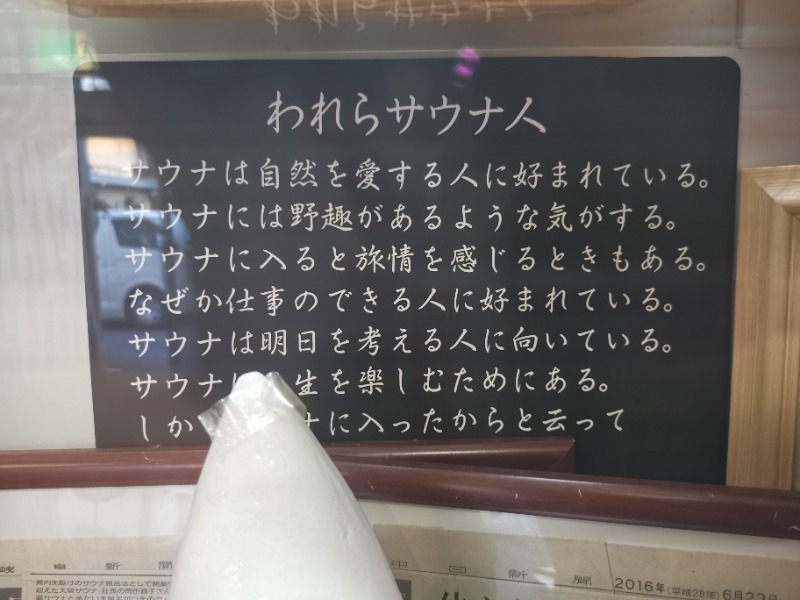 われらサウナ人
サウナは自然を愛する人に好まれている。
サウナには野趣があるような気がする。
サウナに入ると旅情を感じるときもある。
なぜか仕事のできる人に好まれている。
サウナは明日を考える人に向いている。
サウナ 生を楽しむためにある。
しか ナに入ったからと云って
阜新聞
中日新聞
2016年(平成28年)6月23